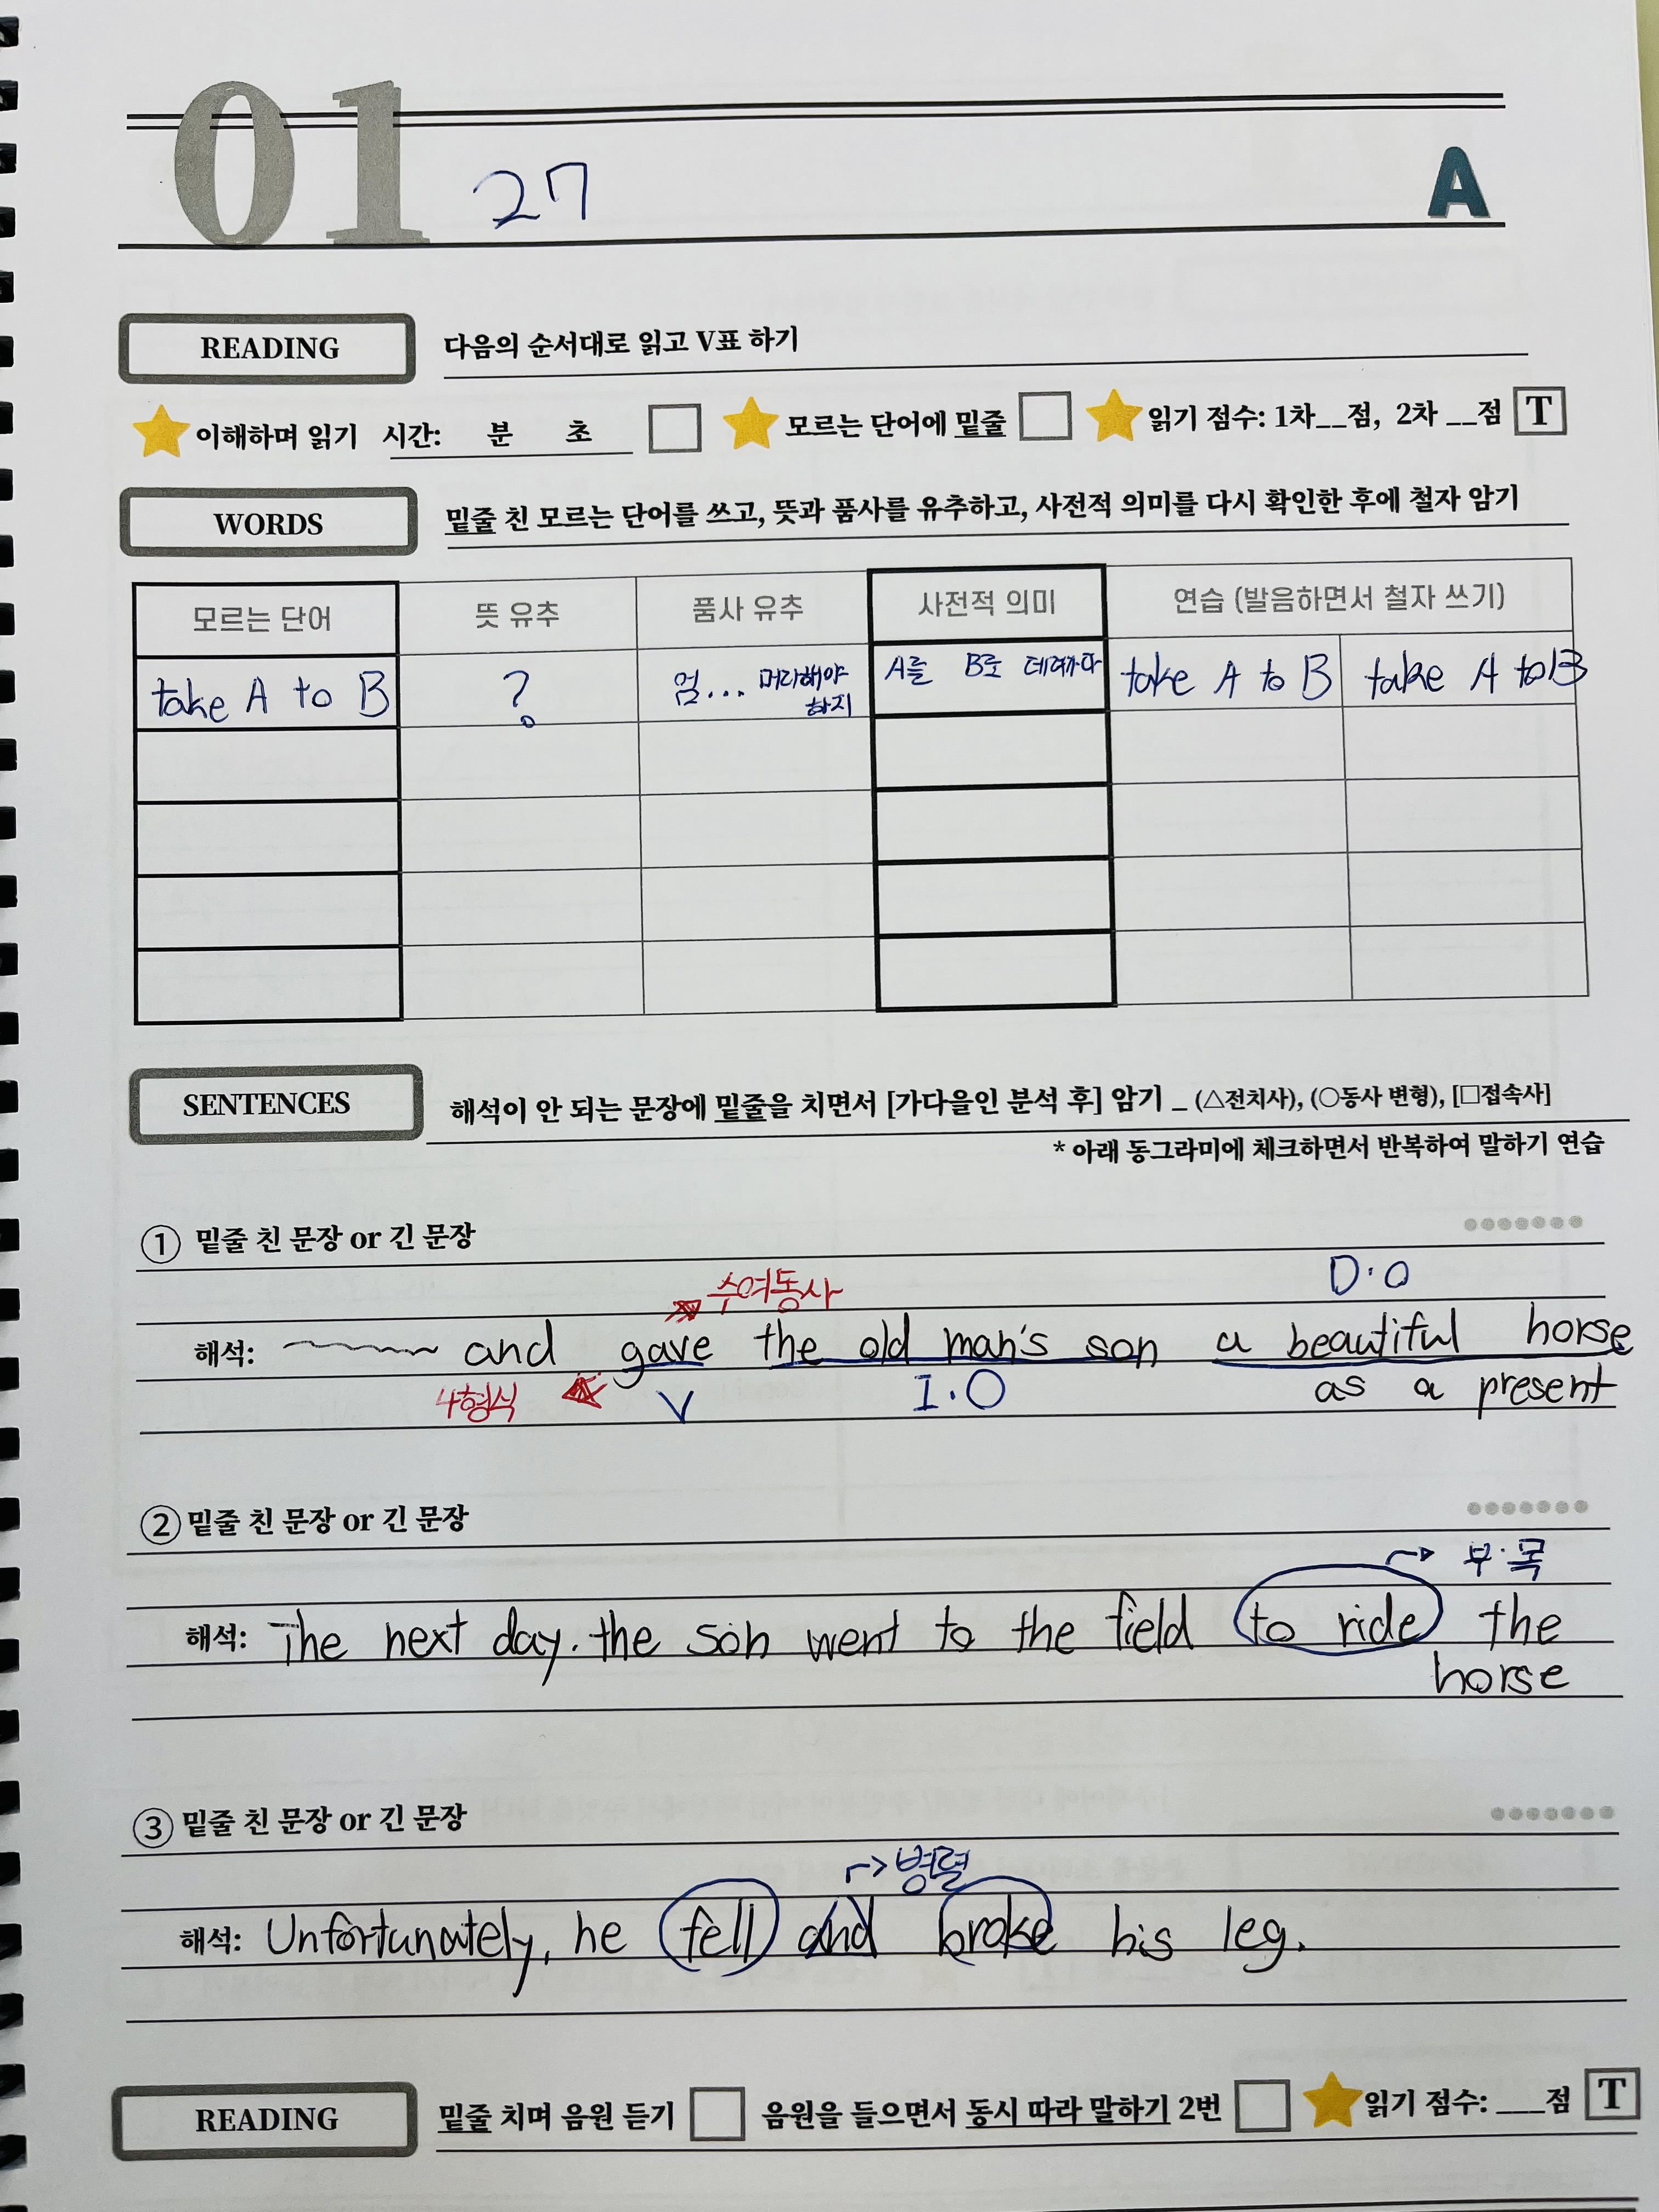 01 27 A
READING 다음의 순서대로 읽고 V표 하기
이해하며 읽기 시간: 분 초 모르는 단어에 밑줄 읽기 점수: 1차__점, 2차 __점 T
WORDS 밑줄 친 모르는 단어를 쓰고, 뜻과 품사를 유추하고, 사전적 의미를 다시 확인한 후에 철자 암기
모르는 단어 뜻 유추 품사 유추 사전적 의미 연습 (발음하면서 철자 쓰기)
take A to B ? 엄... 머라해야 A를 B로 데려가다 take A to B take A to B
하지
SENTENCES 해석이 안 되는 문장에 밑줄을 치면서 [가다을인 분석 후] 암기 _ (△전치사), (○동사 변형), [□접속사]
* 아래 동그라미에 체크하면서 반복하여 말하기 연습
① 밑줄 친 문장 or 긴 문장
수여동사 D·O
해석: and gave the old man's son a beautiful horse
4형식 V I·O as a present
② 밑줄 친 문장 or 긴 문장
부·목
해석: The next day. the son went to the field to ride the
horse
③ 밑줄 친 문장 or 긴 문장
병렬
해석: Unfortunately, he fell and broke his leg.
READING 밑줄 치며 음원 듣기 음원을 들으면서 동시 따라 말하기 2번 읽기 점수: ___점 T